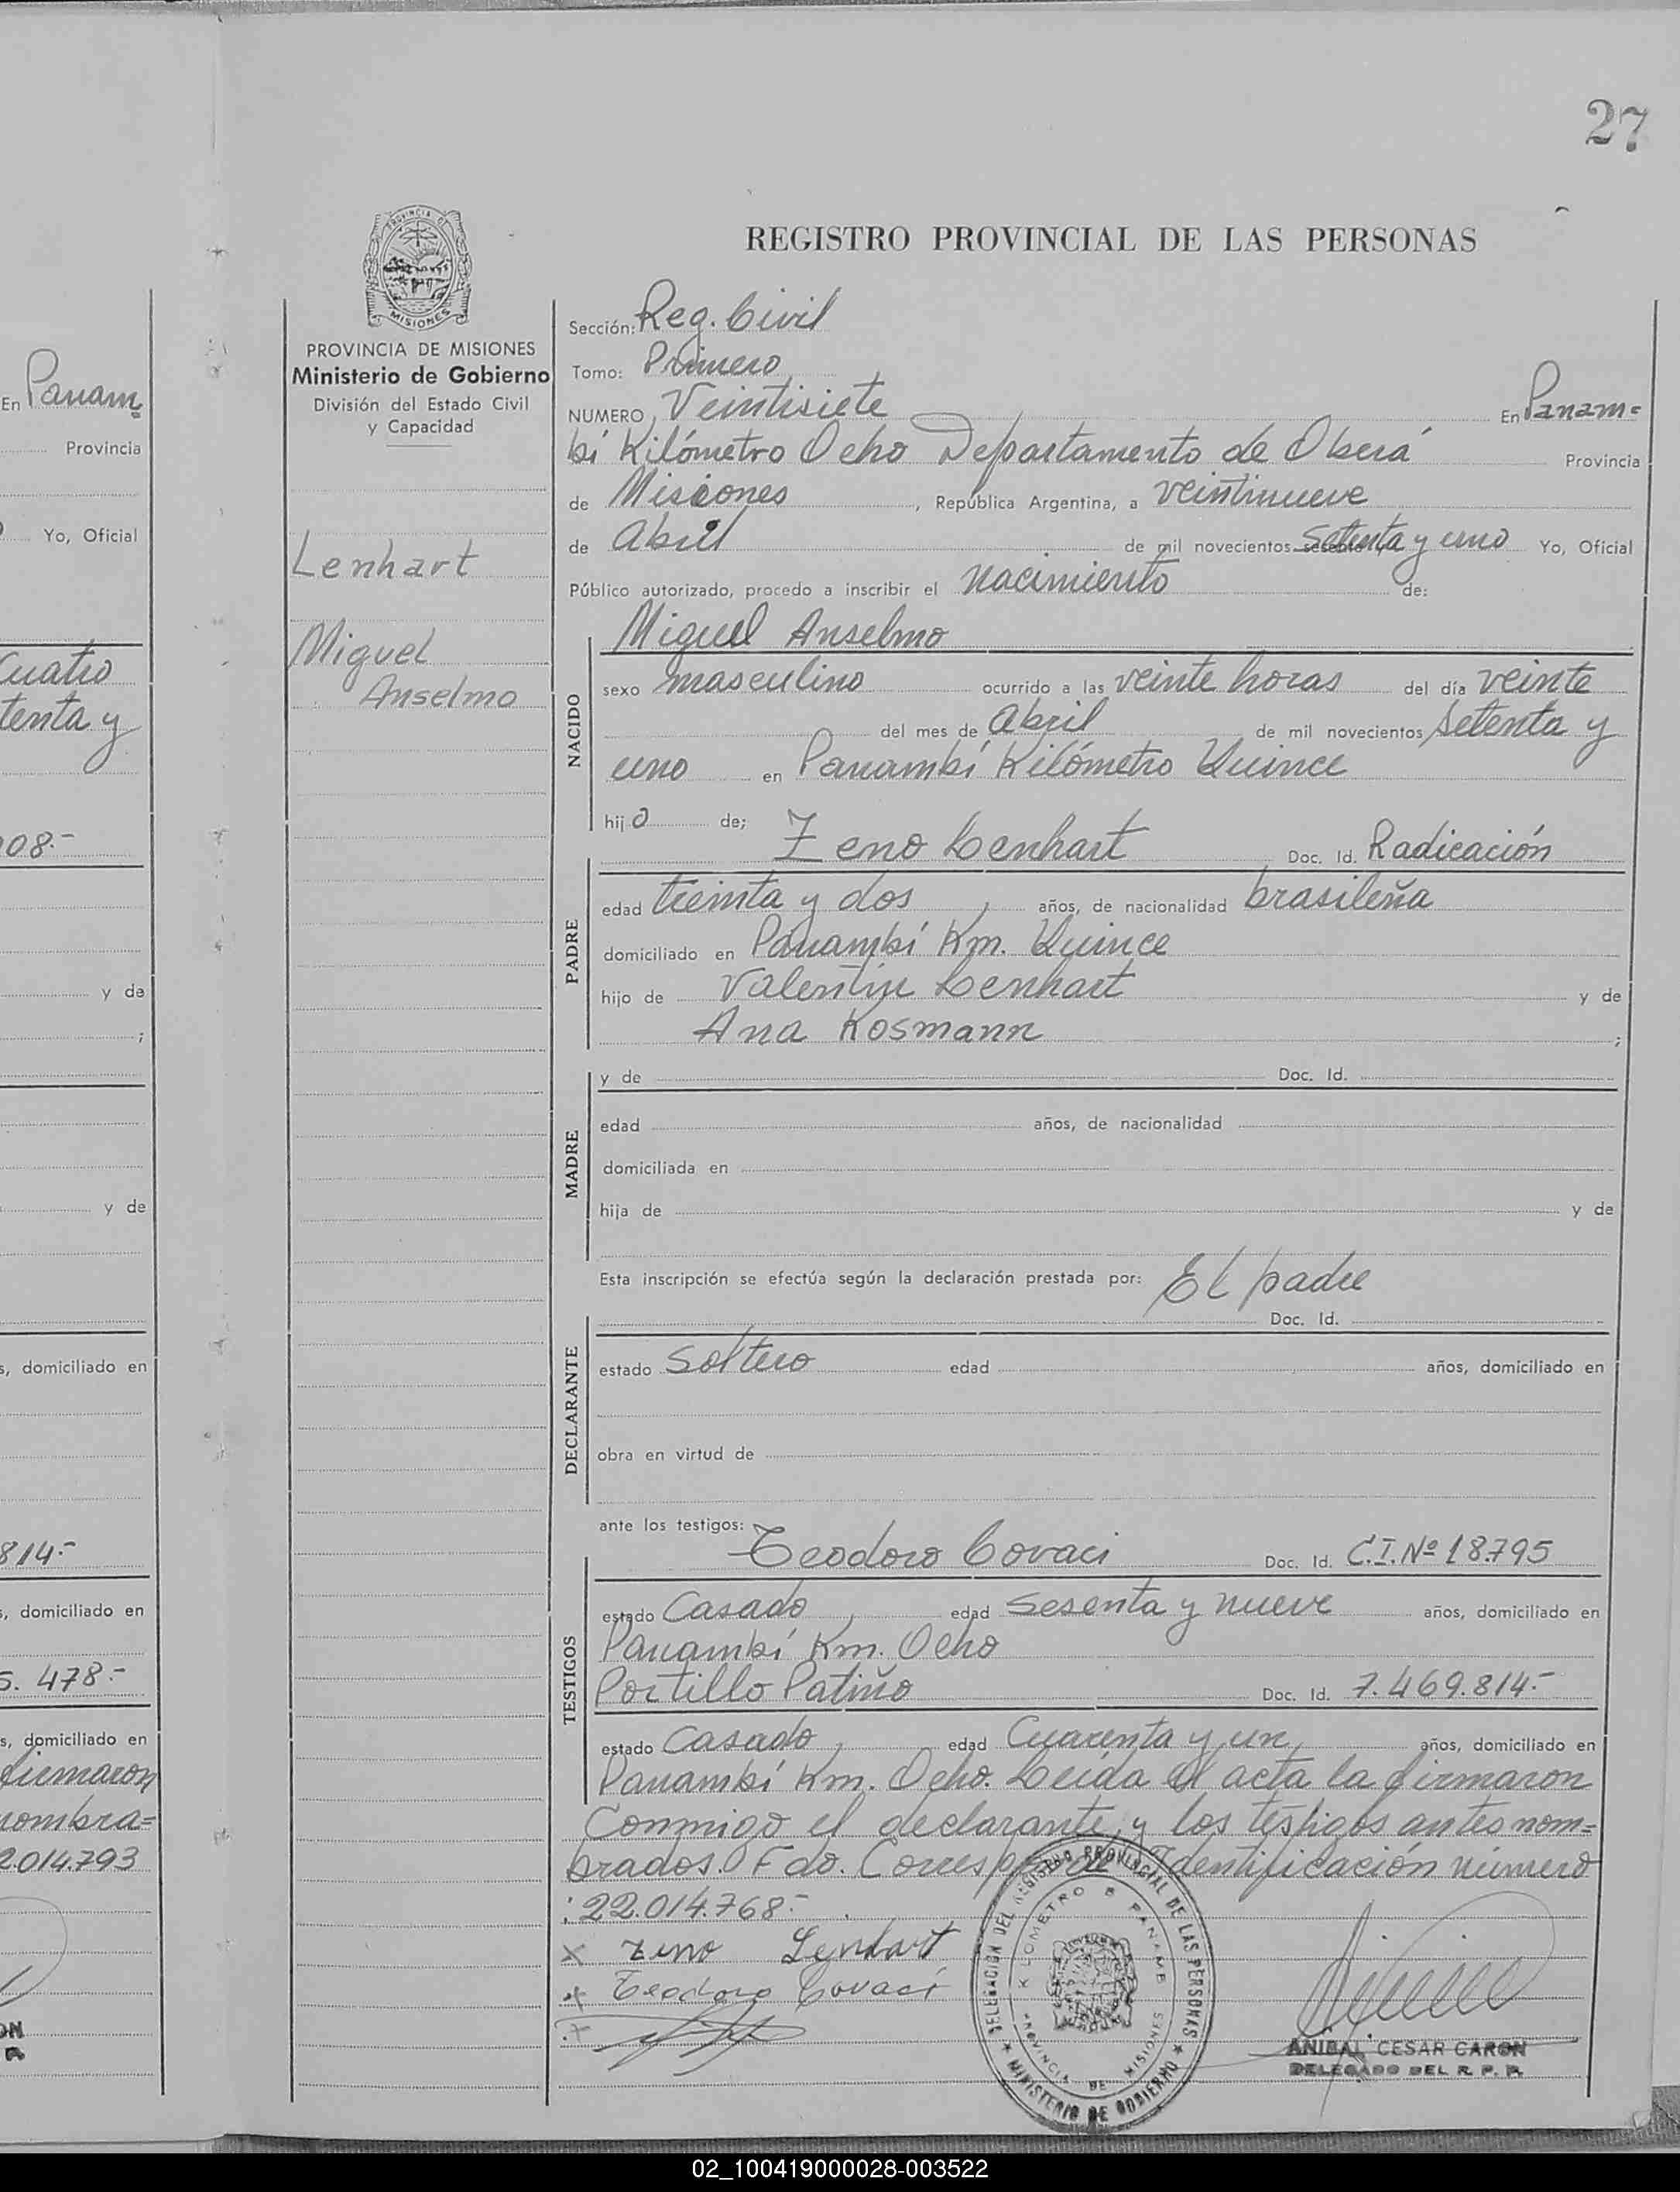 27
PROVINCIA DE
MISIONES
REGISTRO PROVINCIAL DE LAS PERSONAS
PROVINCIA DE MISIONES
Ministerio de Gobierno
División del Estado Civil
y Capacidad
Lenhart
Miguel
Anselmo
Sección: Reg. Civil
Tomo: Primero
NUMERO Veintisiete En Panam=
bí Kilómetro Ocho Departamento de Oberá Provincia
de Misiones, República Argentina, a veintinueve
de Abril de mil novecientos setenta y uno Yo, Oficial
Público autorizado, procedo a inscribir el nacimiento de:
Miguel Anselmo
NACIDO
sexo masculino ocurrido a las veinte horas del día veinte
del mes de Abril de mil novecientos setenta y
uno en Panambí Kilómetro Quince
hijo de;
Zeno Lenhart Doc. Id. Radicación
PADRE
edad treinta y dos, años, de nacionalidad brasileña
domiciliado en Panambí Km. Quince
hijo de Valentin Lenhart y de
Ana Kosmann ;
MADRE
y de Doc. Id.
edad años, de nacionalidad
domiciliada en
hija de y de
Esta inscripción se efectúa según la declaración prestada por: El padre
Doc. Id.
DECLARANTE
estado Soltero edad años, domiciliado en
obra en virtud de
ante los testigos:
Teodoro Covaci Doc. Id. C.I. Nº 18.795
TESTIGOS
estado Casado, edad Sesenta y nueve años, domiciliado en
Panambí Km. Ocho
Portillo Patiño Doc. Id. 7.469.814.-
estado Casado, edad Cuarenta y un, años, domiciliado en
Panambí Km. Ocho. Leída el acta la firmaron
Conmigo el declarante, y los testigos antes nom=
brados. Fdo. Corresponde Identificación número
: 22.014.768.-
x Zeno Lenhart
x Teodoro Covaci
DELEGACION DEL REGISTRO PROVINCIAL DE LAS PERSONAS
★ MINISTERIO DE GOBIERNO ★
KILOMETRO 8 PANAMBI
PROVINCIA DE MISIONES
ANIBAL CESAR CARON
DELEGADO DEL R. P. P.
En Panam=
Provincia
Yo, Oficial
Cuatro
tenta y
108.-
y de
;
y de
s, domiciliado en
814.-
s, domiciliado en
5. 478.-
s, domiciliado en
firmaron
nombra=
2.014.793
ON
02_100419000028-003522